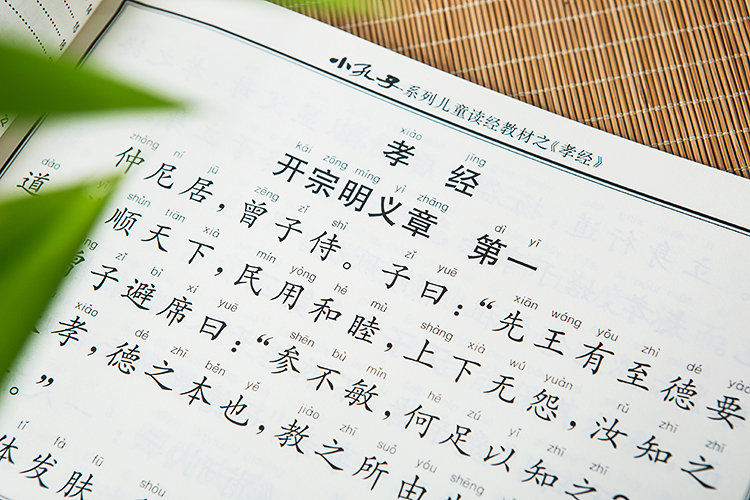 小孔子系列儿童读经教材之《孝经》
xiào jīng
孝经
kāi zōng míng yì zhāng dì yī
开宗明义章 第一
zhòng ní jū zēng zǐ shì zǐ yuē xiān wáng yǒu zhì dé yào
仲尼居,曾子侍。子曰:“先王有至德要
dào shùn tiān xià mín yòng hé mù shàng xià wú yuàn rǔ zhī
道,顺天下,民用和睦,上下无怨,汝知之
zǐ bì xí yuē shēn bù mǐn hé zú yǐ zhī
曾子避席曰:“参不敏,何足以知之?
xiào dé zhī běn yě jiào zhī suǒ yóu shēng
孝,德之本也,教之所由
tǐ fà fū shòu
体发肤